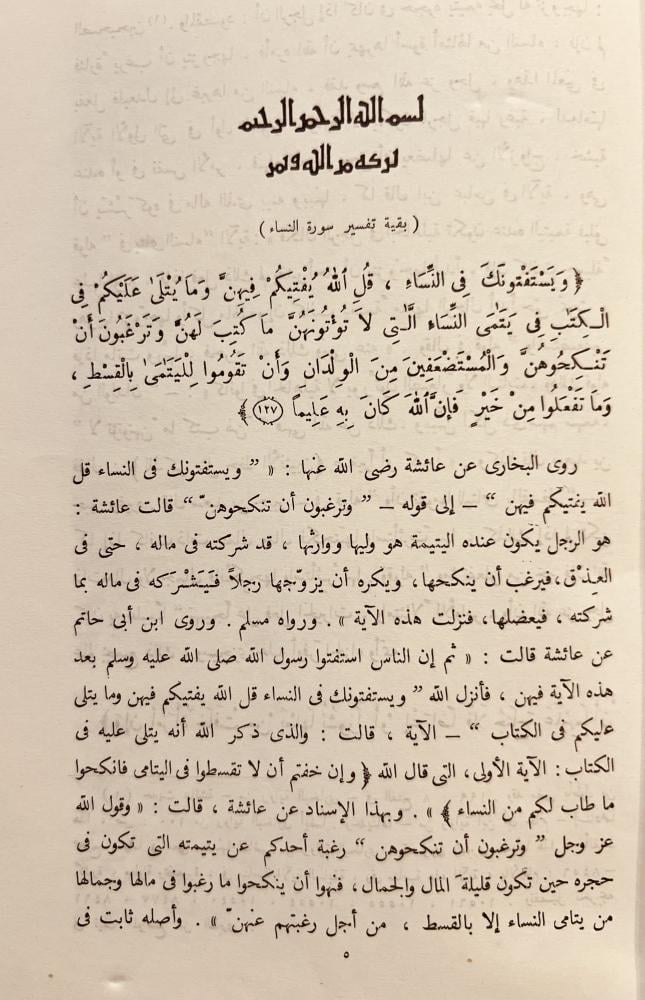 بسم الله الرحمن الرحيم
( بقية تفسير سورة النساء )
﴿ وَيَسْتَفْتُونَكَ فِى النِّسَاءِ ، قُلِ ٱللهُ يُفْتِيكُمْ فِيهِنَّ وَمَا يُتْلَىٰ عَلَيْكُمْ فِى
الْكِتَٰبِ فِى يَتَٰمَى النِّسَاءِ الَّٰتِى لاَ تُؤْتُونَهُنَّ مَا كُتِبَ لَهُنَّ وَتَرْغَبُونَ أَنْ
تَنْكِحُوهُنَّ وَالْمُسْتَضْعَفِينَ مِنَ الْوِلْدَانِ وَأَنْ تَقُومُوا لِلْيَتَٰمَىٰ بِالْقِسْطِ ،
وَمَا تَفْعَلُوا مِنْ خَيْرٍ فَإِنَّ ٱللهَ كَانَ بِهِ عَلِيماً (١٢٧) ﴾
روى البخارى عن عائشة رضى الله عنها : « ” ويستفتونك فى النساء قل
الله يفتيكم فيهن “ – إلى قوله – ” وترغبون أن تنكحوهنّ “ قالت عائشة :
هو الرجل يكون عنده اليتيمة هو وليها ووارثها ، قد شركته فى ماله ، حتى فى
العِذْق ، فيرغب أن ينكحها ، ويكره أن يزوّجها رجلاً فَيَشْرَكه فى ماله بما
شركته ، فيعضلها ، فنزلت هذه الآية » . ورواه مسلم . وروى ابن أبى حاتم
عن عائشة قالت : « ثم إن الناس استفتوا رسول الله صلى الله عليه وسلم بعد
هذه الآية فيهن ، فأنزل الله ” ويستفتونك فى النساء قل الله يفتيكم فيهن وما يتلى
عليكم فى الكتاب “ – الآية ، قالت : والذى ذكر الله أنه يتلى عليه فى
الكتاب : الآية الأولى ، التى قال الله ﴿ وإن خفتم أن لا تقسطوا فى اليتامى فانكحوا
ما طاب لكم من النساء ﴾ » . وبهذا الإسناد عن عائشة ، قالت : « وقول الله
عز وجل ” وترغبون أن تنكحوهن “ رغبة أحدكم عن يتيمته التى تكون فى
حجره حين تكون قليلةَ المال والجمال ، فنهوا أن ينكحوا ما رغبوا فى مالها وجمالها
من يتامى النساء إلا بالقسط ، من أجل رغبتهم عنهنّ » . وأصله ثابت فى
٥